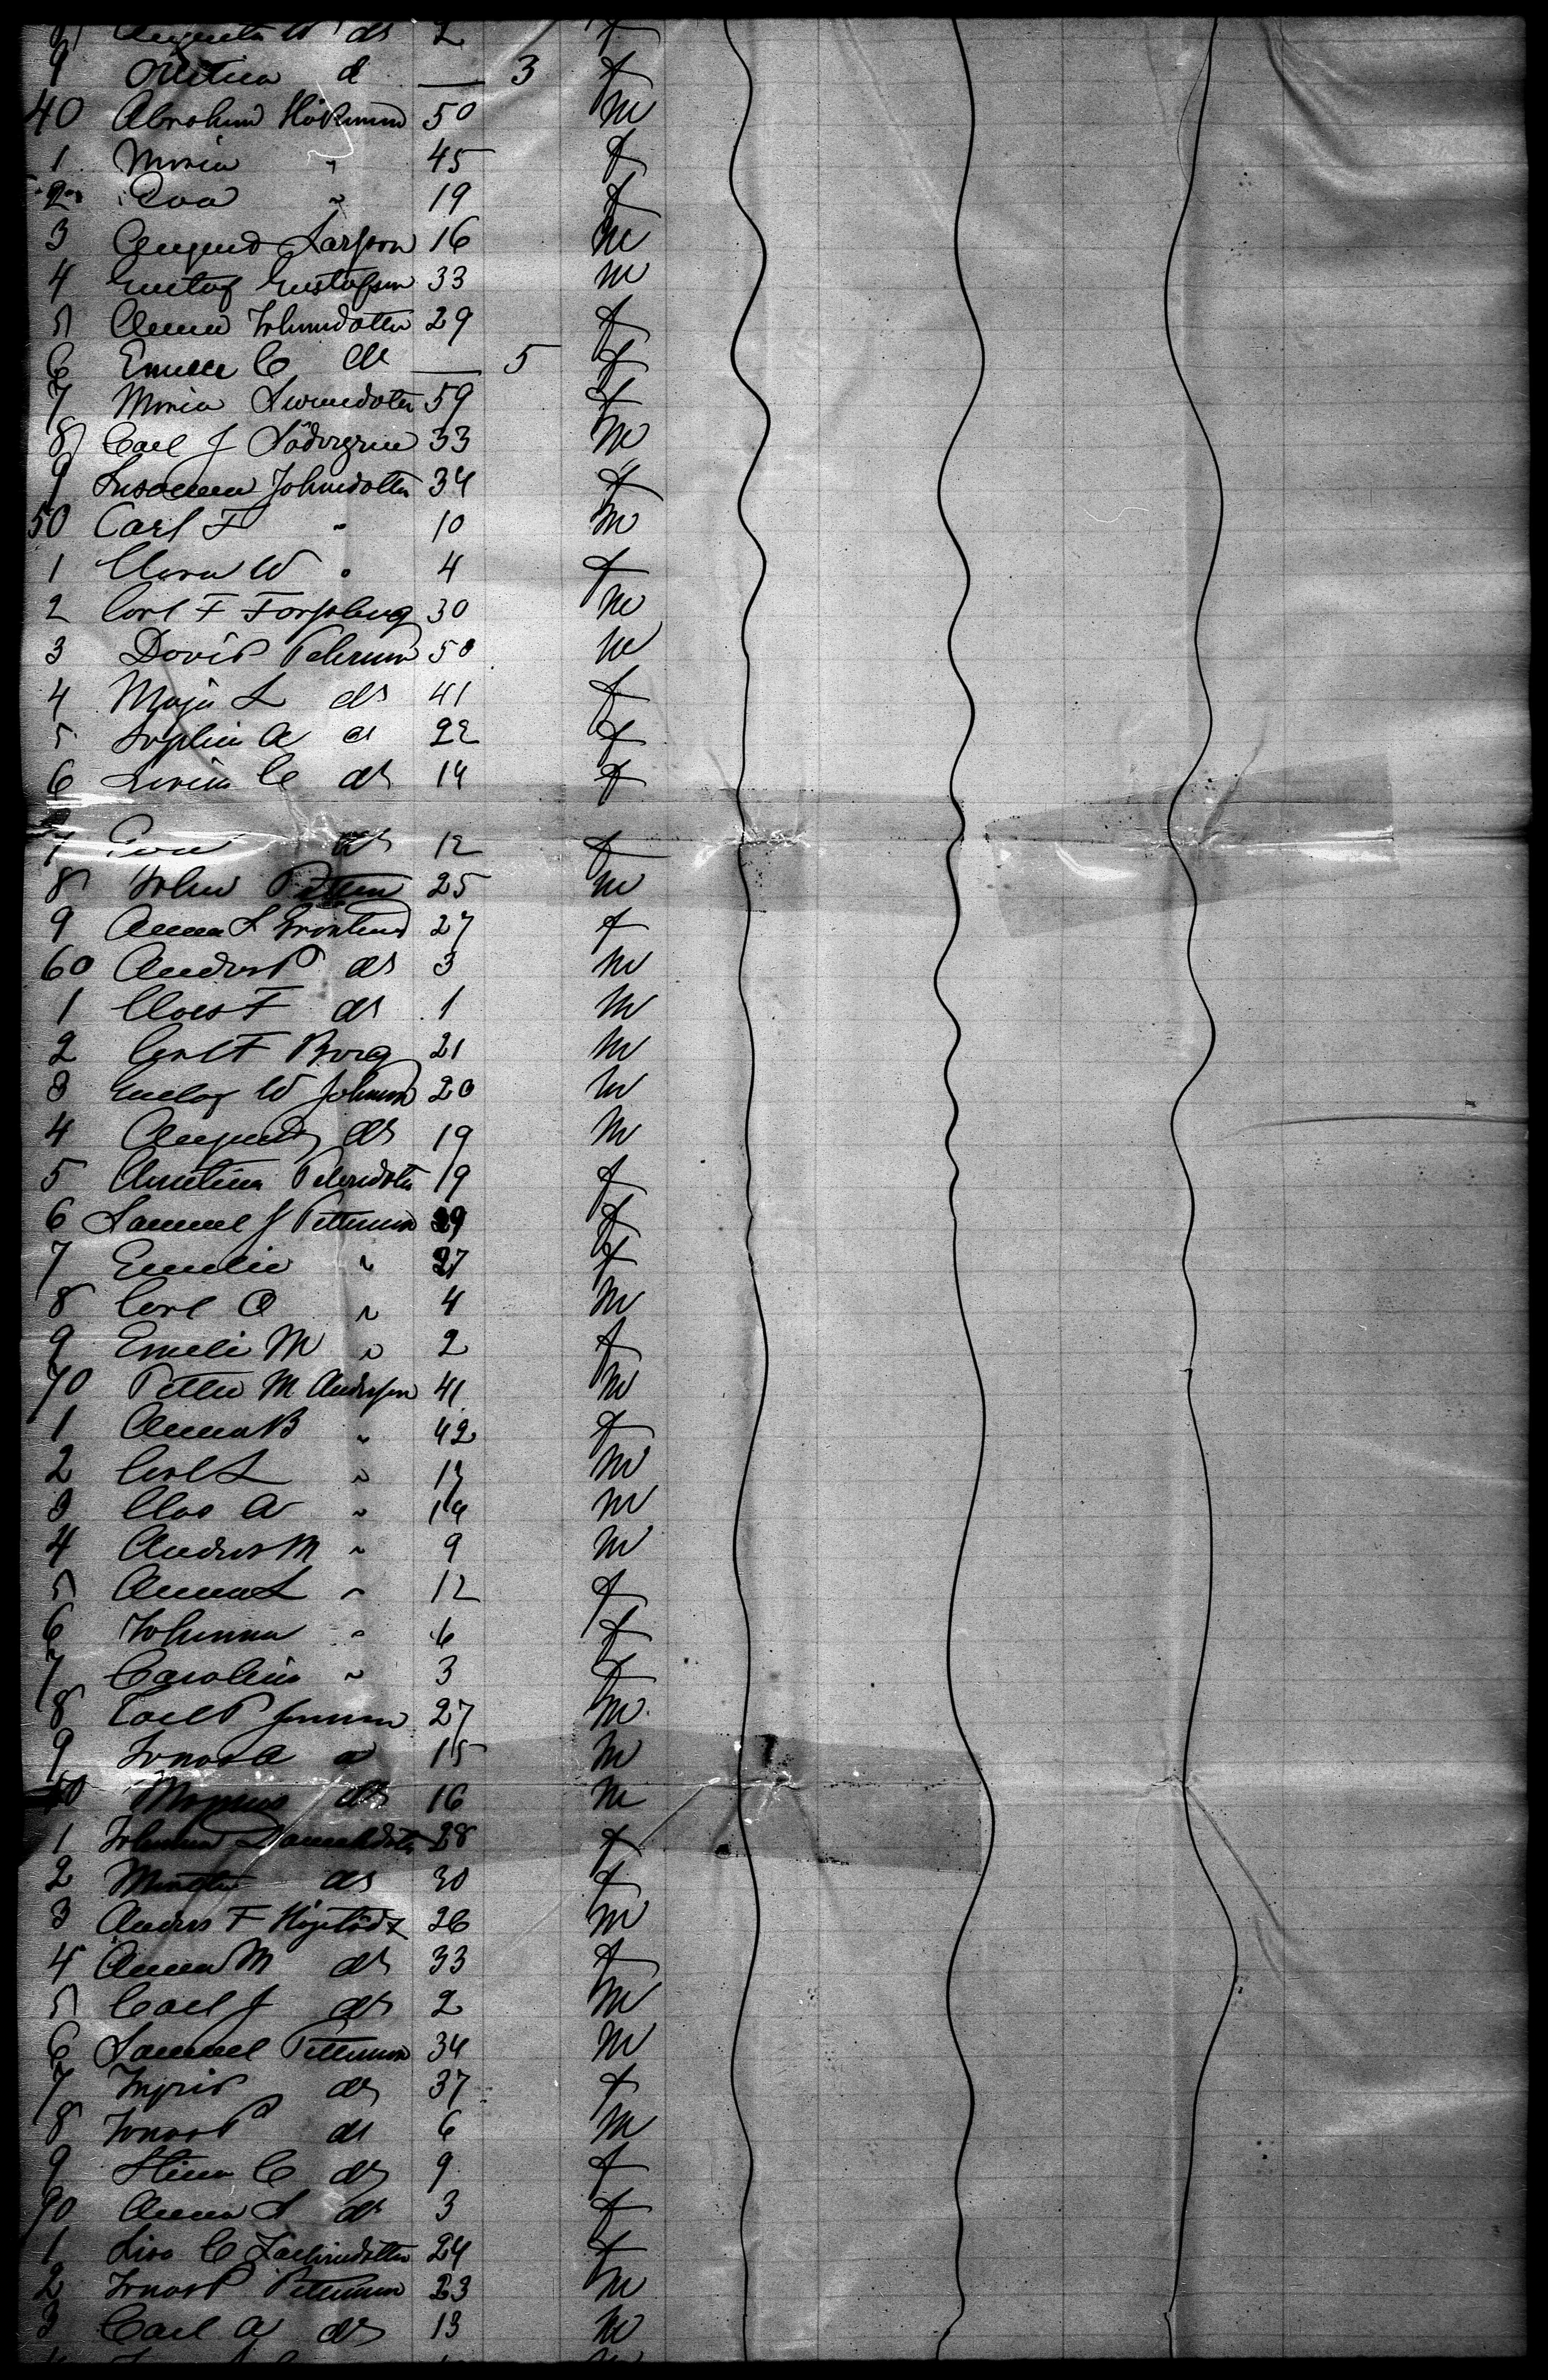 8 Augusta W do 2 f
9 Mtina d — 3 f
40 Abraham Hökmund 50 m
1 Maria " 45 f
2 Eva " 19 f
3 August Larsson 16 m
4 Gustaf Gustafson 33 m
5 Anna Johnsdotter 29 f
6 Emilie C do — 5 f
7 Maria Swensdoter 59 f
8 Carl J Södergren 33 m
9 Susanna Johnsdotter 34 f
50 Carl F " 10 m
1 Clara W " 4 f
2 Carl F Forssberg 30 m
3 David Peterson 50 m
4 Maja L do 41 f
5 Sophia A do 22 f
6 Lovisa C do 14 f
7 Eva do 12 f
8 John 25 m
9 Anna L Grönlund 27 f
60 Anders P do 3 m
1 Claes F do 1 m
2 Carl F Borg 21 m
3 Gustaf W Johnson 20 m
4 August do 19 m
5 Christina Petersdoter 19 f
6 Samuel J Petterson 29 f
7 Emelie " 27 f
8 Carl O " 4 m
9 Emeli M " 2 f
70 Petter M Anderson 41 m
1 Anna B " 42 f
2 Carl L " m
3 Clas A " 14 m
4 Anders M " 9 m
5 Anna L " 12 f
6 Johanna " 6 f
7 Carolina " 3 f
8 Carl P Jonsson 27 m
9 Jonas A do 15 m
80 Magnus do 16 m
1 Johanna Danielsdoter 28 f
2 do 30 f
3 Anders F Högstädt 26 m
4 Anna M do 33 f
5 Carl J do 2 m
6 Samuel Petterson 34 m
7 Ingrid do 37 f
8 Jonas P do 6 m
9 Stina C do 9 f
90 Anna S do 3 f
1 Lisa C Zachrisdotter 24 f
2 Jonas P Petterson 23 m
3 Carl A do 13 m